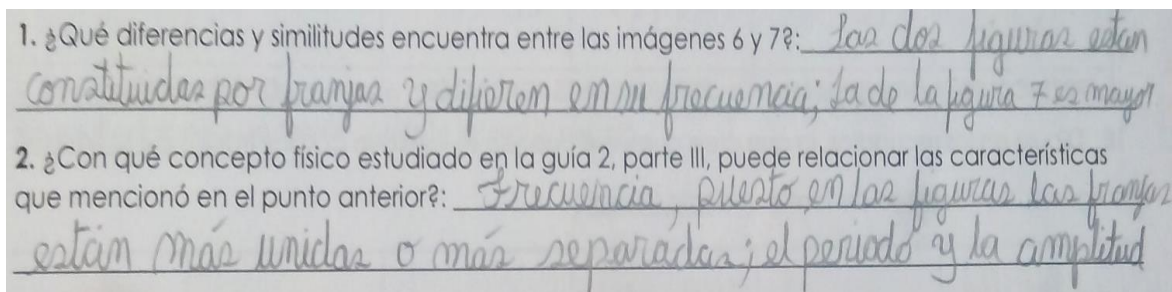 1. ¿Qué diferencias y similitudes encuentra entre las imágenes 6 y 7?: Las dos figuras estan
constituidas por franjas y difieren en su frecuencia; la de la figura 7 es mayor
2. ¿Con qué concepto físico estudiado en la guía 2, parte III, puede relacionar las características
que mencionó en el punto anterior?: Frecuencia, puesto en las figuras las franjas
están más unidas o más separadas; el periodo y la amplitud